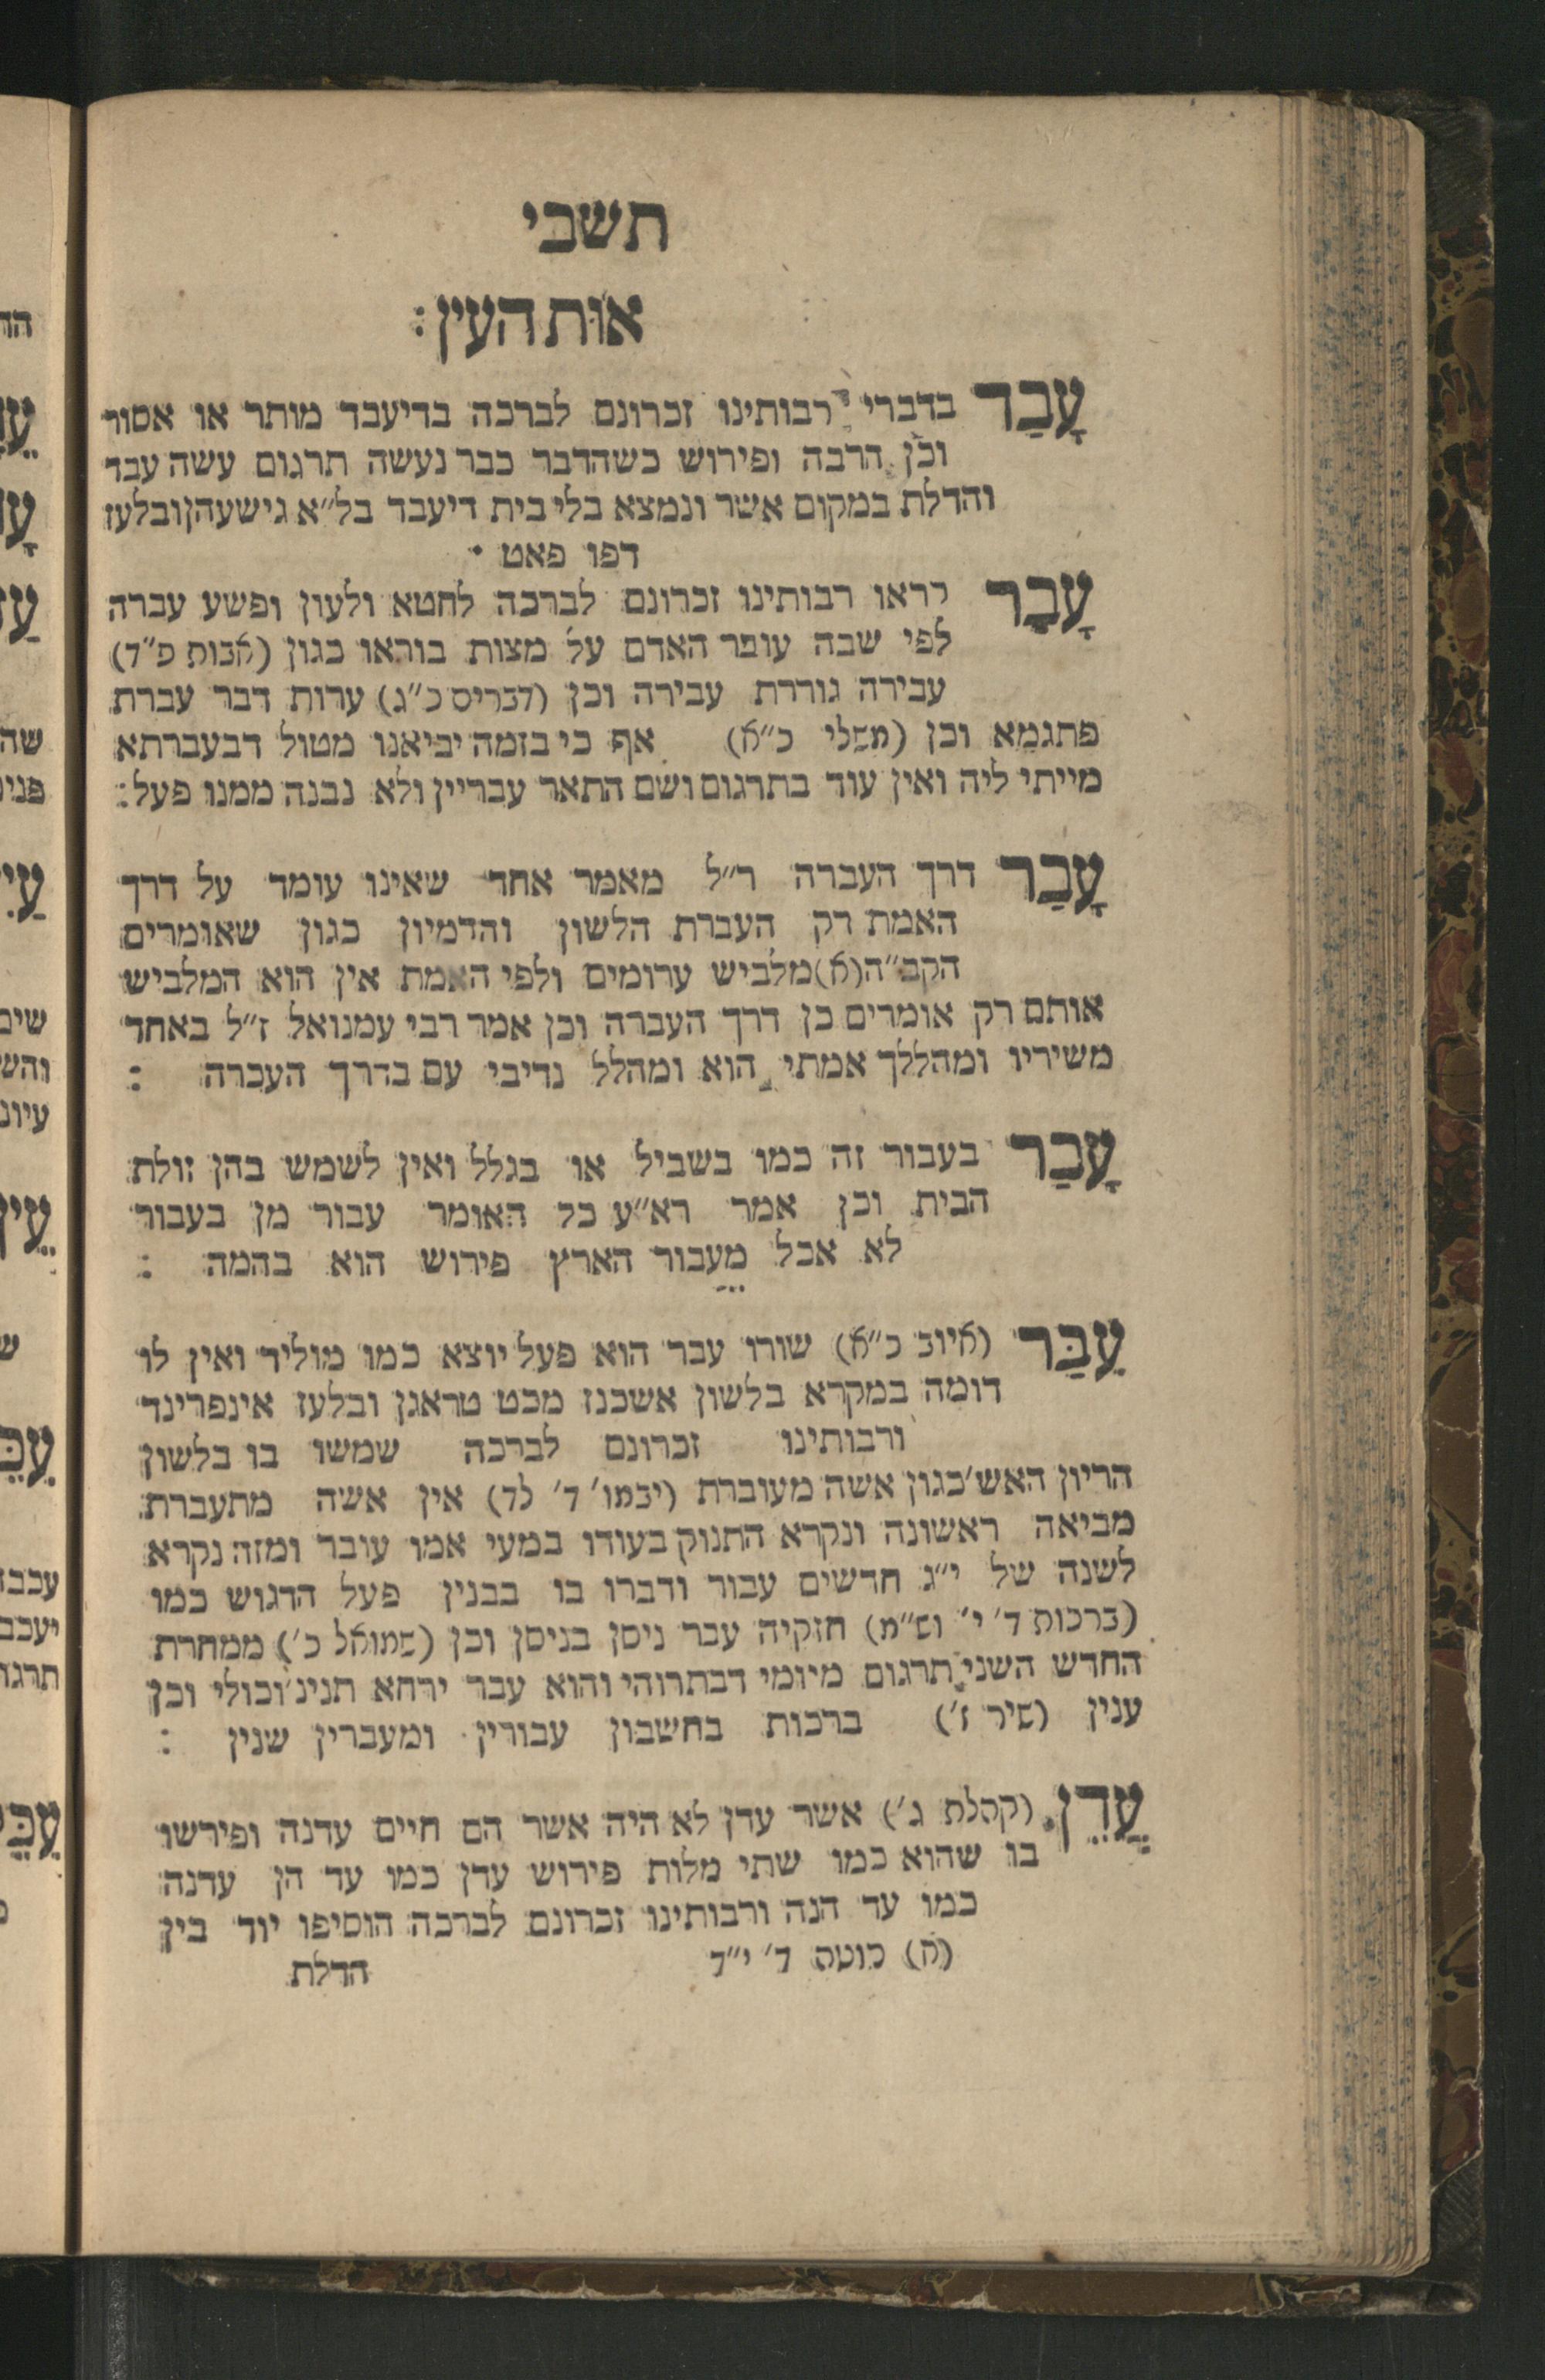 תשבי
אות העין:
עָבַד בדברי רבותינו זכרונם לברכה בדיעבד מותר או אסור
וכן הרבה ופירוש כשהדבר כבר נעשה תרגום עשה עבד
והדלת במקום אשר ונמצא בלי בית דיעבד בל״א גישעהן ובלעז
דפו פאט •
עָבַר קראו רבותינו זכרונם לברכה לחטא ולעון ופשע עברה
לפי שבה עובר האדם על מצות בוראו כגון (אבות פ״ד)
עבירה גוררת עבירה וכן (דברים כ״ג) ערות דבר עברת
פתגמא וכן (משלי כ״א) אף כי בזמה יביאנו מטול דבעברתא
מייתי ליה ואין עוד בתרגום ושם התאר עבריין ולא נבנה ממנו פעל:
עָבַר דרך העברה ר״ל מאמר אחד שאינו עומד על דרך
האמת רק העברת הלשון והדמיון כגון שאומרים
הקב״ה (א) מלביש ערומים ולפי האמת אין הוא המלביש
אותם רק אומרים כן דרך העברה וכן אמר רבי עמנואל ז״ל באחד
משיריו ומהללך אמתי הוא ומהלל נדיבי עם בדרך העברה :
עָבַר בעבור זה כמו בשביל או בגלל ואין לשמש בהן זולת
הבית וכן אמר רא״ע כל האומר עבור מן בעבור
לא אכל מֵעבור הארץ פירוש הוא בהמה :
עִבַּר (איוב כ״א) שורו עבר הוא פעל יוצא כמו מוליד ואין לו
דומה במקרא בלשון אשכנז מכט טראגן ובלעז אינפרינד
ורבותינו זכרונם לברכה שמשו בו בלשון
הריון האש׳ כגון אשה מעוברת (יבמו׳ ד׳ לד) אין אשה מתעברת
מביאה ראשונה ונקרא התנוק בעודו במעי אמו עובר ומזה נקרא
לשנה של י״ג חדשים עבור ודברו בו בבנין פעל הדגוש כמו
(ברכות ד׳ י׳ וש״מ) חזקיה עבר ניסן בניסן וכן (שמואל כ׳) ממחרת
החדש השני תרגום מיומי דבתרוהי והוא עבר ירחא תנינ׳ וכולי וכן
ענין (שיר ז׳) ברכות בחשבון עבורין ומעברין שנין :
עֲדֶן (קהלת ג׳) אשר עדן לא היה אשר הם חיים עדנה ופירשו
בו שהוא כמו שתי מלות פירוש עדן כמו עד הן עדנה
כמו עד הנה ורבותינו זכרונם לברכה הוסיפו יוד בין
(א) סוטה ד׳ י״ד הדלת